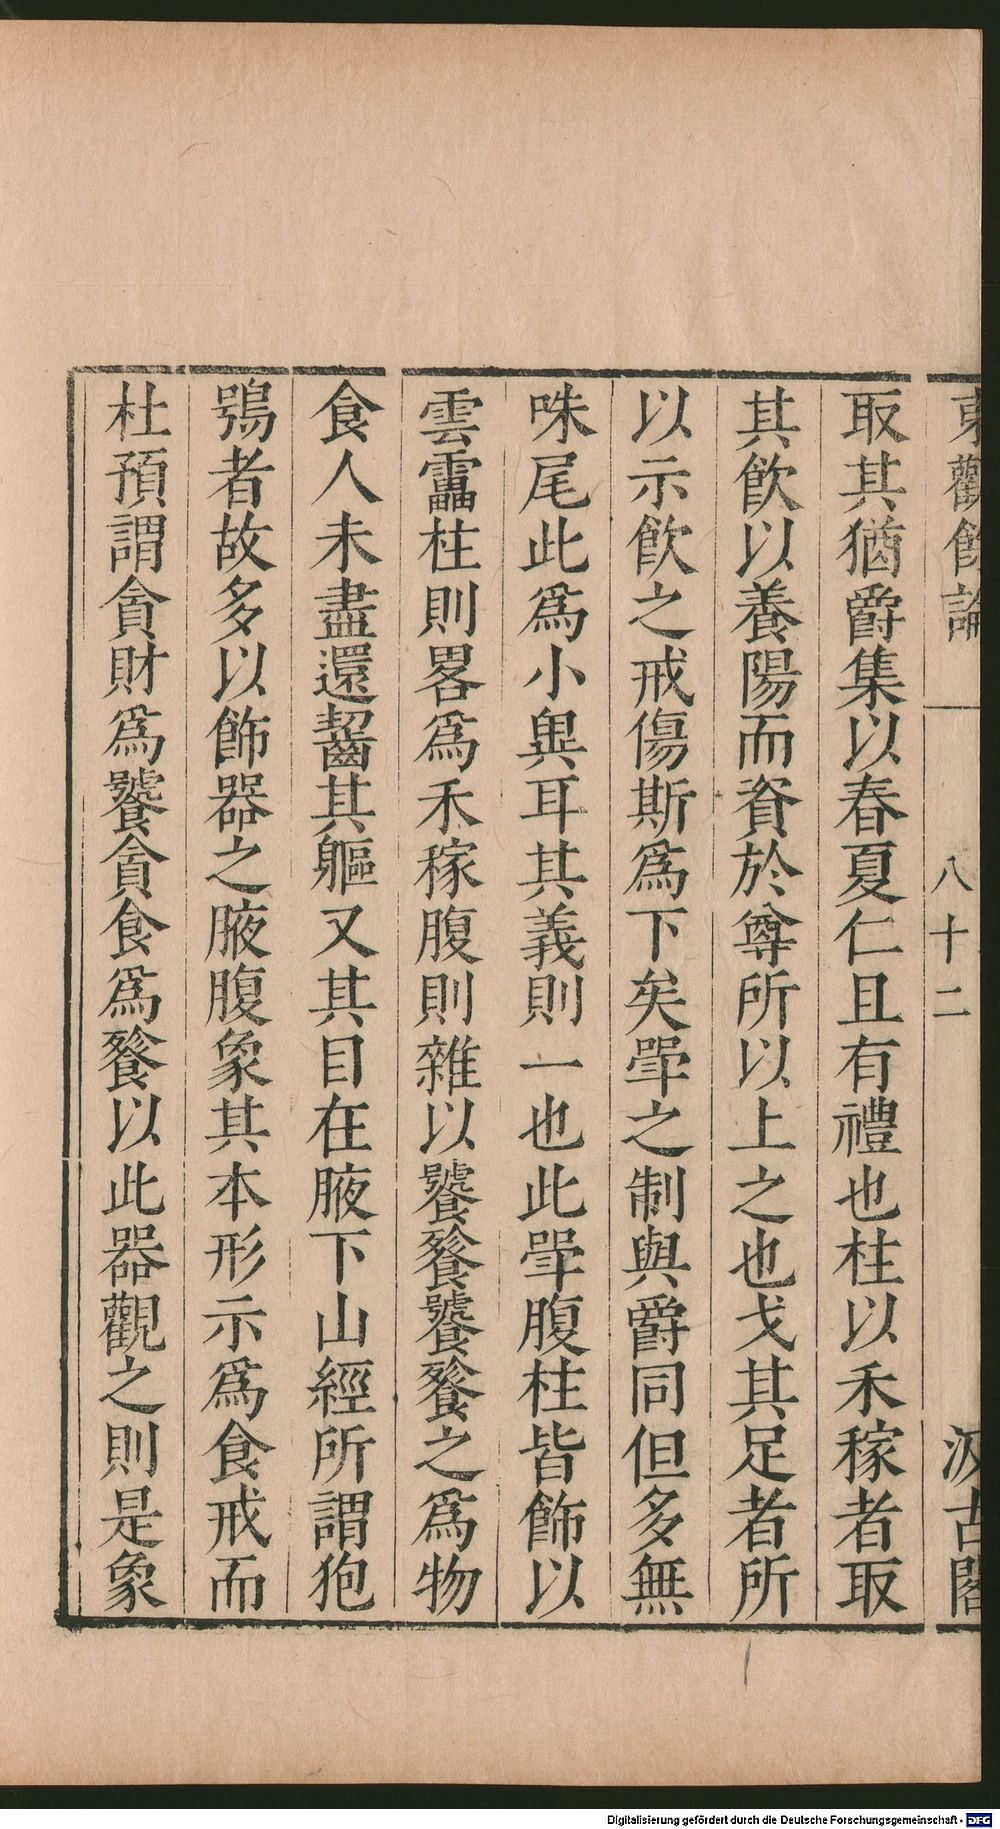 東觀餘論
八十二
汲古閣
取其猶爵集以春夏仁且有禮也柱以禾稼者取
其飲以養陽而資於尊所以上之也戈其足者所
以示飲之戒傷斯為下矣斝之制與爵同但多無
咮尾此為小異耳其義則一也此斝腹柱皆飾以
雲靁柱則畧為禾稼腹則雜以饕餮饕餮之為物
食人未盡還齧其軀又其目在腋下山經所謂狍
鴞者故多以飾器之腋腹象其本形示為食戒而
杜預謂貪財為饕貪食為餮以此器觀之則是象
Digitalisierung gefördert durch die Deutsche Forschungsgemeinschaft - DFG